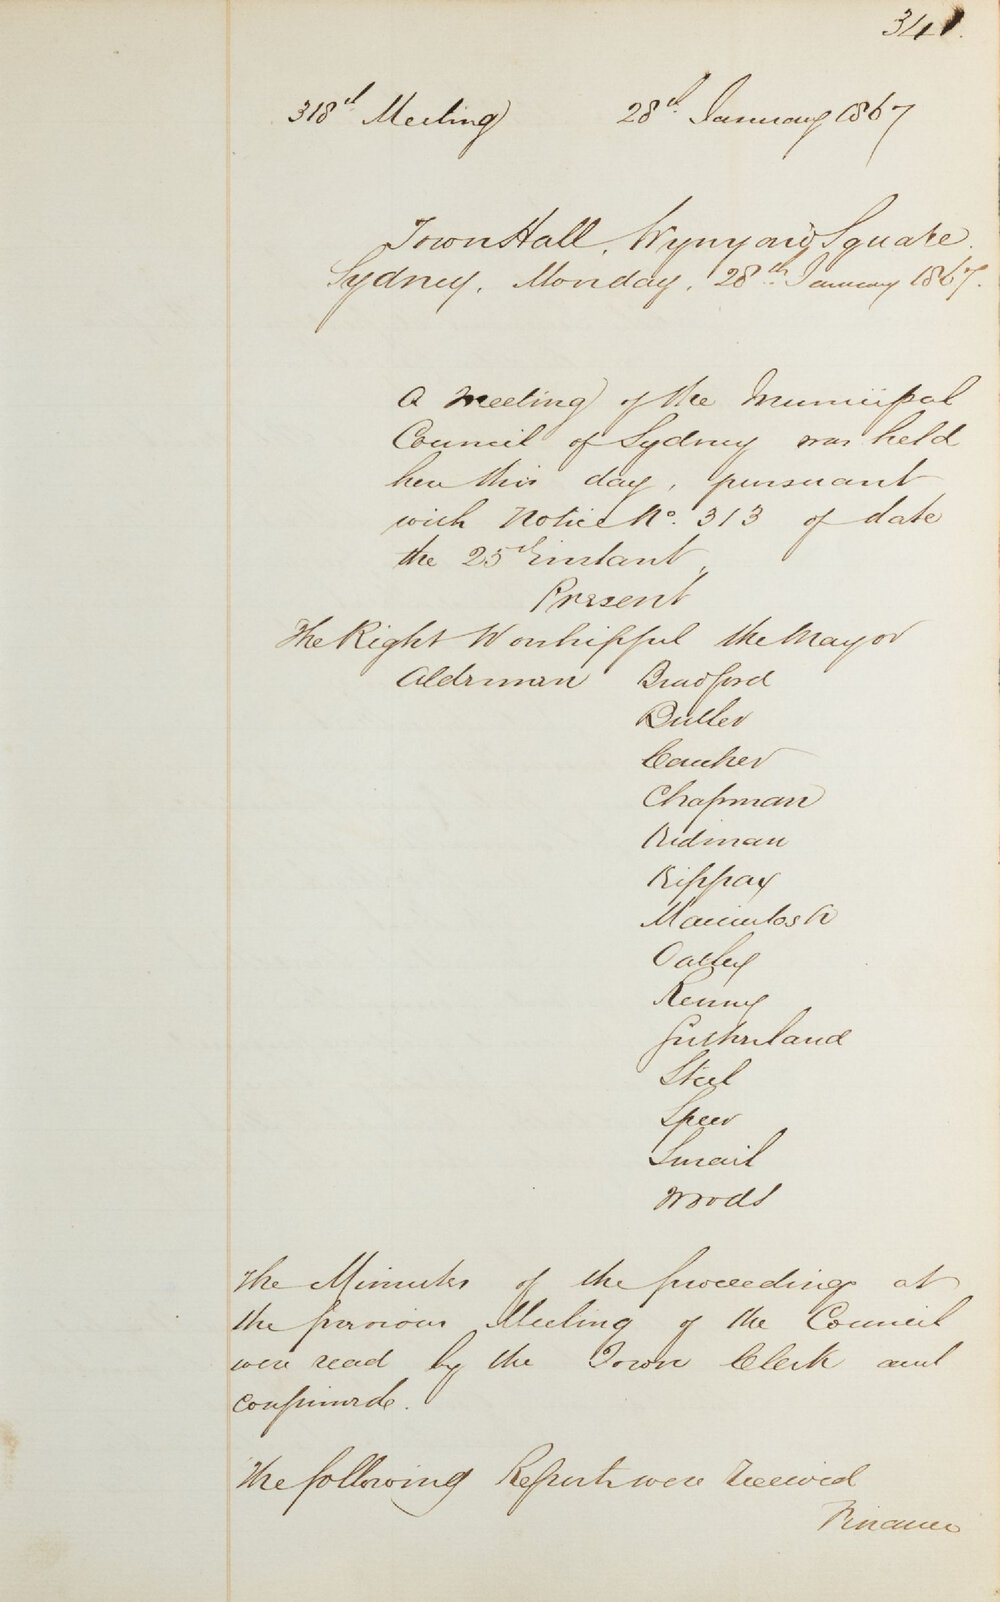 341.
318th Meeting 28th January 1867
Town Hall, Wynyard Square.
Sydney, Monday, 28th January 1867.
A Meeting of the Municipal
Council of Sydney was held
here this day, pursuant
with Notice No. 313 of date
the 25th instant,
Present
The Right Worshipful the Mayor
Aldermen Bradford
Butler
Caraher
Chapman
Kidman
Kippax
Macintosh
Oatley
Renny
Sutherland
Steel
Speer
Smail
Woods
The Minutes of the proceedings at
the previous Meeting of the Council
were read by the Town Clerk and
confirmed.
The following Reports were received
Finance